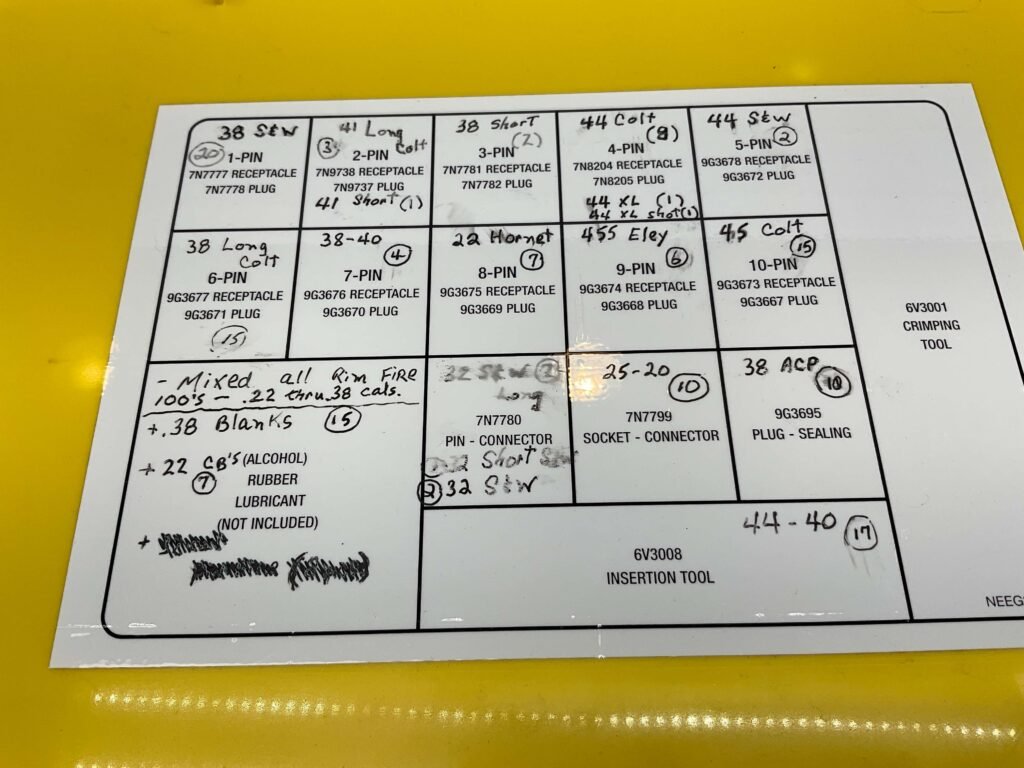 38 S&W
(20) 1-PIN
7N7777 RECEPTACLE
7N7778 PLUG
41 Long
Colt
(3) 2-PIN
7N9738 RECEPTACLE
7N9737 PLUG
41 Short (1)
38 Short
(2)
3-PIN
7N7781 RECEPTACLE
7N7782 PLUG
44 Colt
4-PIN
7N8204 RECEPTACLE
7N8205 PLUG
44 XL (1)
44 XL shot (1)
44 S&W
5-PIN (2)
9G3678 RECEPTACLE
9G3672 PLUG
38 Long
Colt
6-PIN
9G3677 RECEPTACLE
9G3671 PLUG
(15)
38-40
(4)
7-PIN
9G3676 RECEPTACLE
9G3670 PLUG
22 Hornet
(7)
8-PIN
9G3675 RECEPTACLE
9G3669 PLUG
455 Eley
9-PIN (6)
9G3674 RECEPTACLE
9G3668 PLUG
45 Colt
(15)
10-PIN
9G3673 RECEPTACLE
9G3667 PLUG
6V3001
CRIMPING
TOOL
- Mixed all Rim Fire
100's - .22 thru .38 cals.
+ .38 Blanks (15)
+ 22 CB's (ALCOHOL)
(7) RUBBER
LUBRICANT
(NOT INCLUDED)
+
32 S&W
Long
7N7780
PIN - CONNECTOR
32 Short
(2) 32 S&W
25-20
(10)
7N7799
SOCKET - CONNECTOR
38 ACP
(10)
9G3695
PLUG - SEALING
44-40 (17)
6V3008
INSERTION TOOL